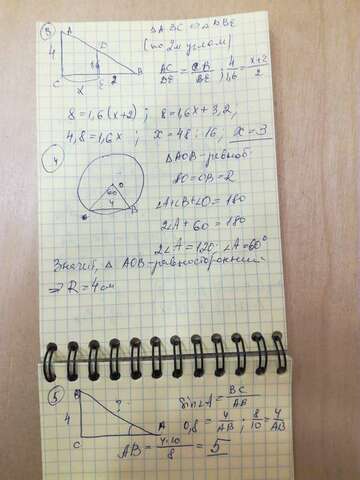 3
A
D
4
1,6
C
x
E
2
B
△ABC ∾ △DBE
(по 2м углам)
AC/DE = CB/BE ; 4/1,6 = x+2/2
8=1,6(x+2) ; 8=1,6x+3,2 ;
4,8=1,6x ; x=48:16, x=3
4
O
60
4
B
△AOB-равноб.
AO=OB=R
∠A+∠B+∠O=180
2∠A+60=180
2∠A=120, ∠A=60°
Значит, △ AOB-равносторонний
⇒ R=4см
5
B
4
?
C
A
Sin∠A = BC/AB
0,8 = 4/AB ; 8/10 = 4/AB
AB = 4·10/8 = 5